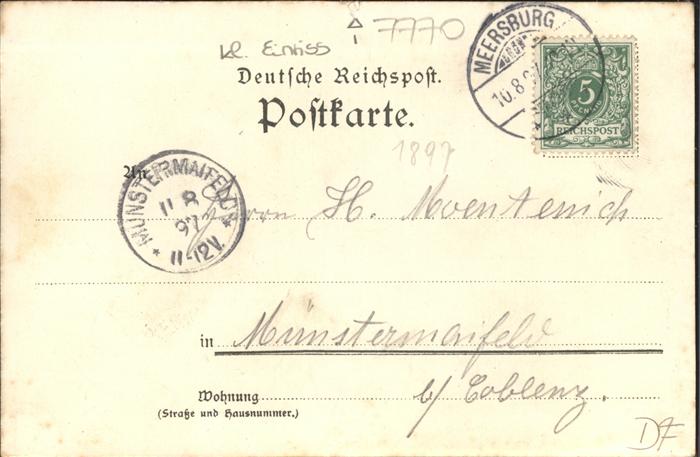 7770
kl. Einriss
MEERSBURG
10.8.9
5
REICHSPOST
Deutsche Reichspost.
Postkarte.
1897
An
MÜNSTERMAIFELD
11 8
97
11-12V.
Herrn H. Moentenich
in Münstermaifeld
Wohnung b/ Coblenz.
(Straße und Hausnummer.)
DF